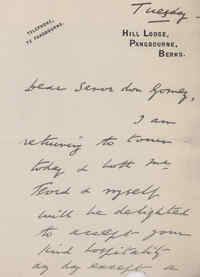 Tuesday
TELEPHONE,
PANGBOURNE.
HILL LODGE,
PANGBOURNE,
BERKS.
Dear Senor don Gomez,
I am
returning to town
today & both Mr
& myself
will be delighted
to accept your
kind hospitality
any day except a